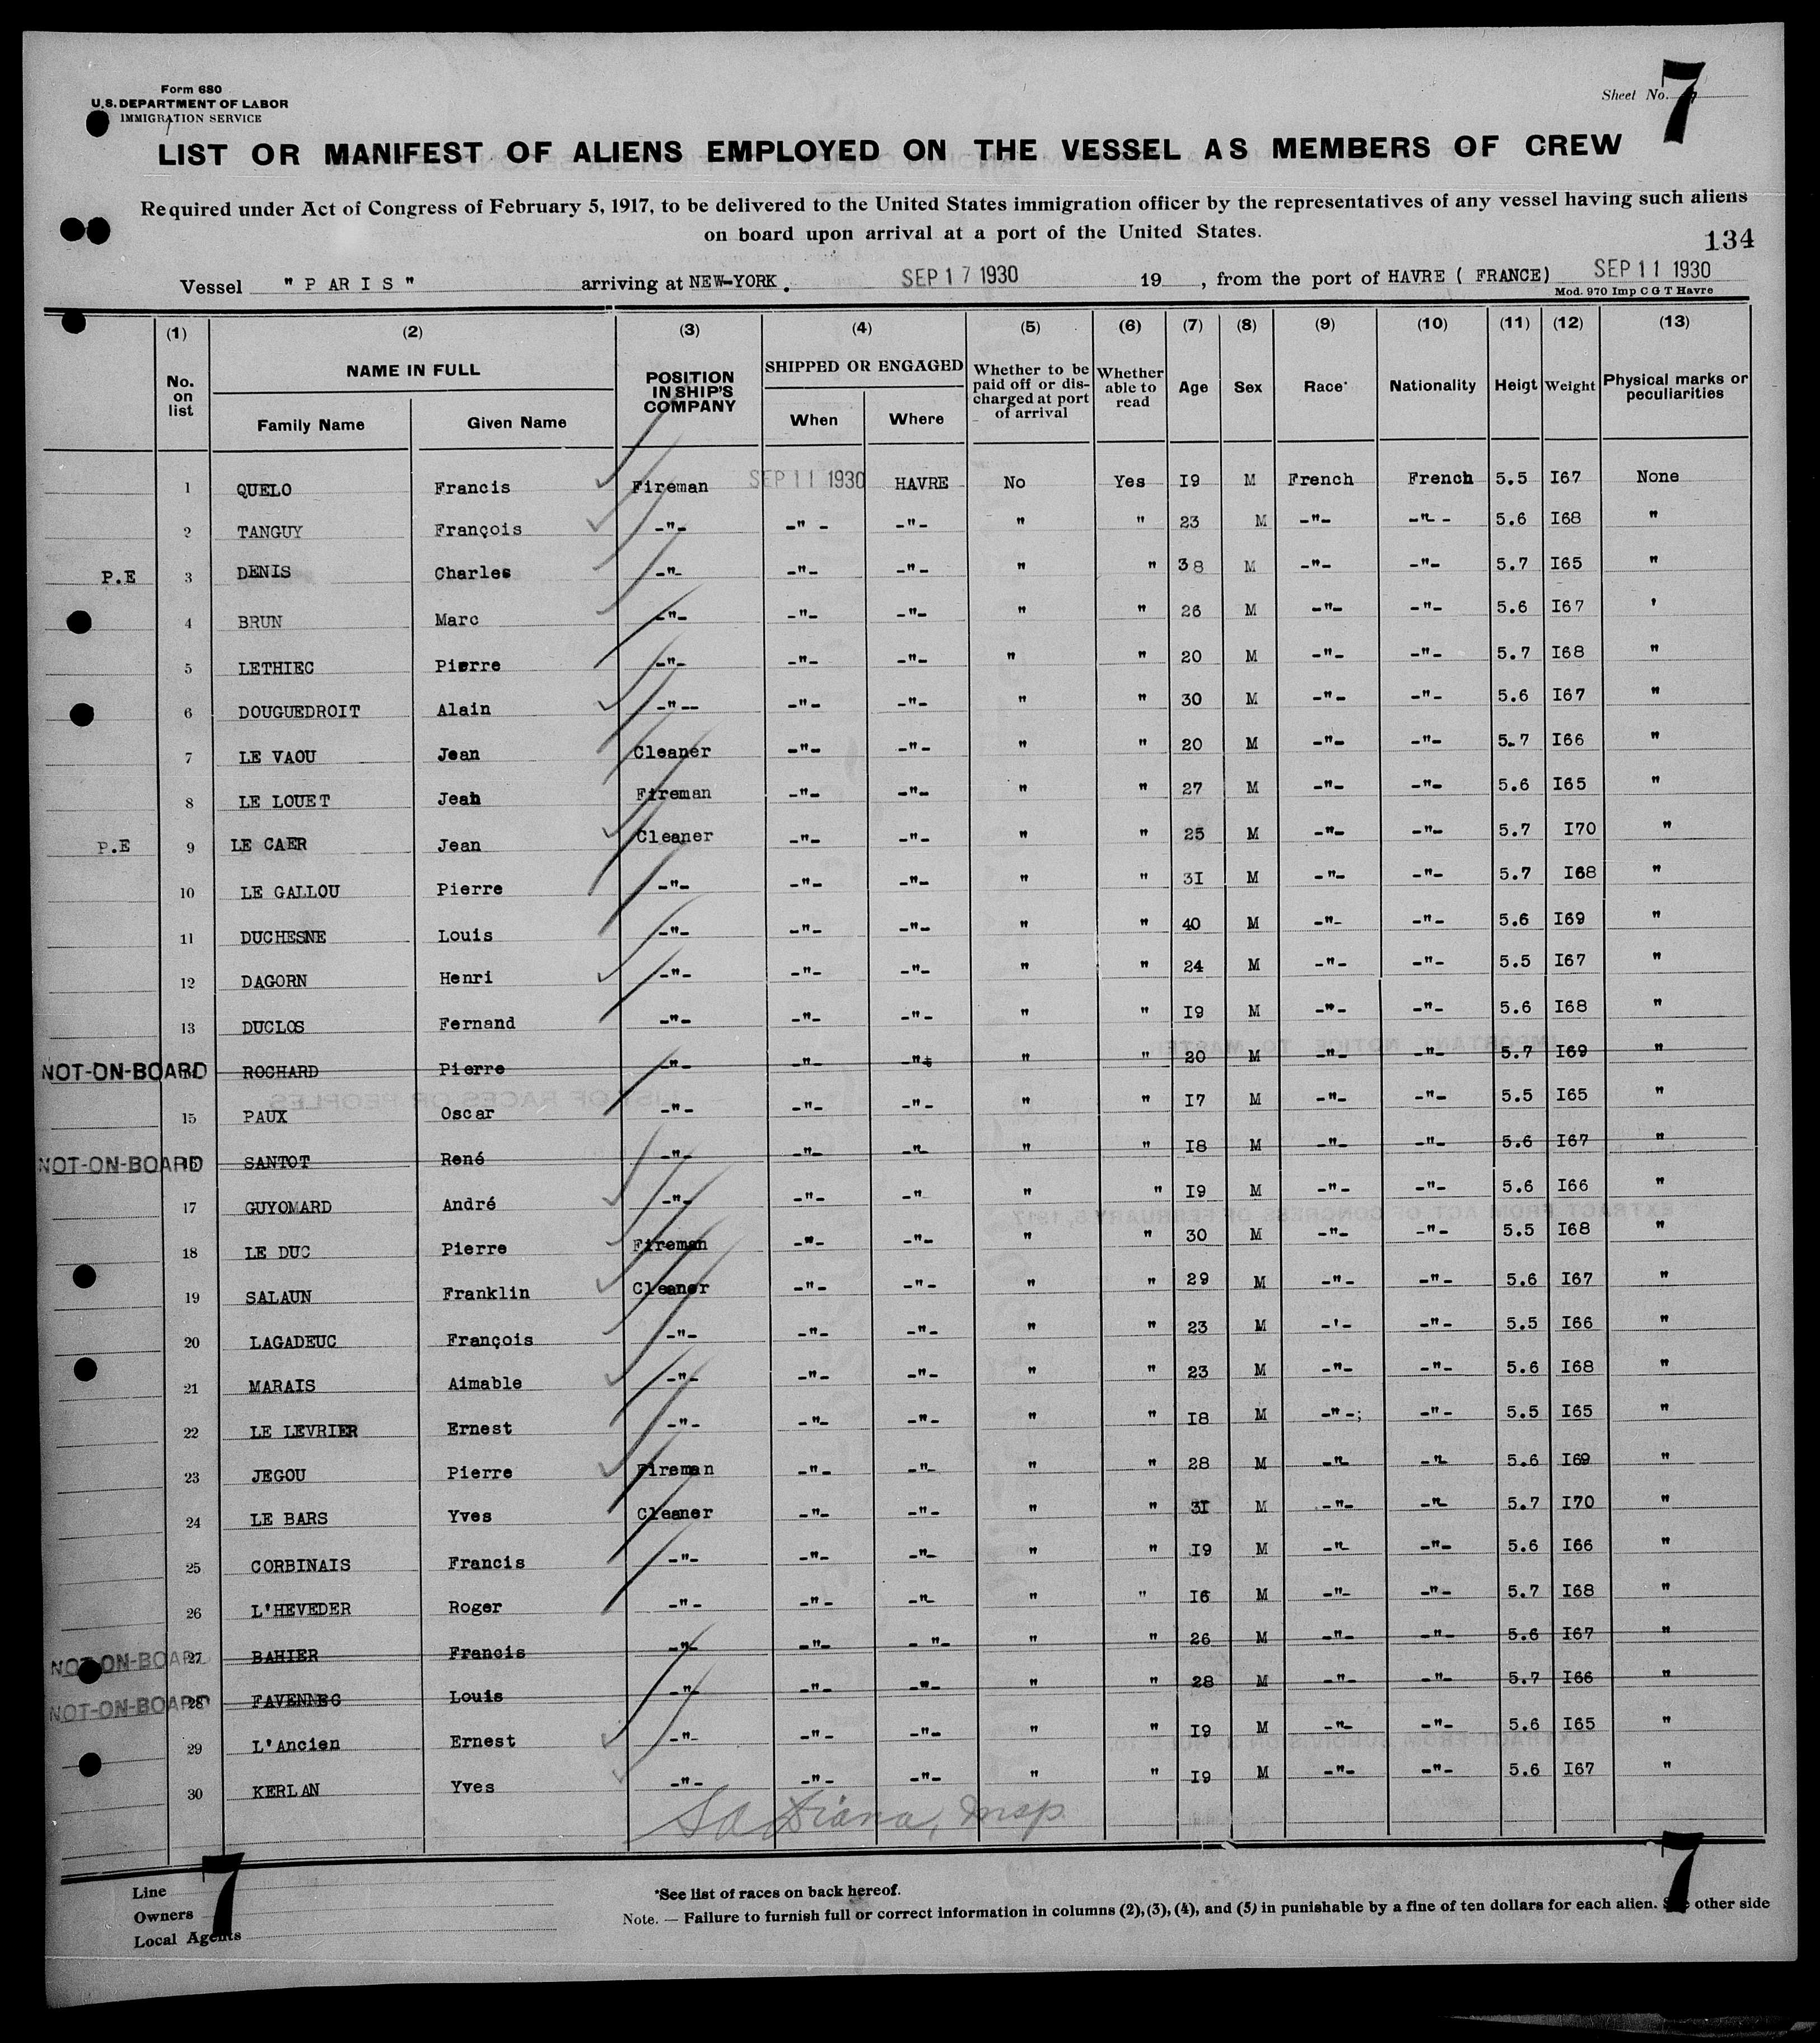 Form 680
U.S. DEPARTMENT OF LABOR
IMMIGRATION SERVICE
Sheet No. 7
LIST OR MANIFEST OF ALIENS EMPLOYED ON THE VESSEL AS MEMBERS OF CREW
Required under Act of Congress of February 5, 1917, to be delivered to the United States immigration officer by the representatives of any vessel having such aliens
on board upon arrival at a port of the United States.
134
Vessel " P AR I S " arriving at NEW-YORK . SEP 17 1930 19 , from the port of HAVRE ( FRANCE) SEP 11 1930
Mod. 970 Imp C G T Havre
(1) (2) (3) (4) (5) (6) (7) (8) (9) (10) (11) (12) (13)
No. on list NAME IN FULL Family Name Given Name POSITION IN SHIP'S COMPANY SHIPPED OR ENGAGED When Where Whether to be paid off or discharged at port of arrival Whether able to read Age Sex Race* Nationality Heigt Weight Physical marks or peculiarities
1 QUELO Francis Fireman SEP 11 1930 HAVRE No Yes I9 M French French 5.5 I67 None
2 TANGUY François -"- -" - -"- " " 23 M -"- -"- 5.6 I68 "
P.E 3 DENIS Charles -"- -"- -"- " " 38 M -"- -"- 5.7 I65 "
4 BRUN Marc -"- -"- -"- " " 26 M -"- -"- 5.6 I67 '
5 LETHIEC Pierre -"- -"- -"- " " 20 M -"- -"- 5.7 I68 "
6 DOUGUEDROIT Alain -"-- -"- -"- " " 30 M -"- -"- 5.6 I67 "
7 LE VAOU Jean Cleaner -"- -"- " " 20 M -"- -"- 5-7 I66 "
8 LE LOUET Jean Fireman -"- -"- " " 27 M -"- -"- 5.6 I65 "
P.E 9 LE CAER Jean Cleaner -"- -"- " " 25 M -"- -"- 5.7 I70 "
10 LE GALLOU Pierre -"- -"- -"- " " 3I M -"- -"- 5.7 I68 "
11 DUCHESNE Louis -"- -"- -"- " " 40 M -"- -"- 5.6 I69 "
12 DAGORN Henri -"- -"- -"- " " 24 M -"- -"- 5.5 I67 "
13 DUCLOS Fernand -"- -"- -"- " " I9 M -"- -"- 5.6 I68 "
NOT-ON-BOARD ROCHARD Pierre -"- -"- -"- " " 20 M -"- -"- 5.7 I69 "
15 PAUX Oscar -"- -"- -"- " " I7 M -"- -"- 5.5 I65 "
NOT-ON-BOARD SANTOT René -"- -"- -"- " " I8 M -"- -"- 5.6 I67 "
17 GUYOMARD André -"- -"- -" " " I9 M -"- -"- 5.6 I66 "
18 LE DUC Pierre Fireman -"- -"- " " 30 M -"- -"- 5.5 I68 "
19 SALAUN Franklin Cleaner -"- -"- " " 29 M -"- -"- 5.6 I67 "
20 LAGADEUC François -"- -"- -"- " " 23 M -'- -"- 5.5 I66 "
21 MARAIS Aimable -"- -"- -"- " " 23 M -"- -"- 5.6 I68 "
22 LE LEVRIER Ernest -"- -"- -"- " " I8 M -"-; -"- 5.5 I65 "
23 JEGOU Pierre Fireman -"- -"- " " 28 M -"- -"- 5.6 I69 "
24 LE BARS Yves Cleaner -"- -"- " " 3I M -"- -"- 5.7 I70 "
25 CORBINAIS Francis -"- -"- -"- " " I9 M -"- -"- 5.6 I66 "
26 L'HEVEDER Roger -"- -"- -"- " " I6 M -"- -"- 5.7 I68 "
NOT-ON-BOARD 27 BAHIER Francis -"- -"- -"- " " 26 M -"- -"- 5.6 I67 "
NOT-ON-BOARD 28 FAVENNEC Louis -"- -"- -"- " " 28 M -"- -"- 5.7 I66 "
29 L'Ancien Ernest -"- -"- -"- " " I9 M -"- -"- 5.6 I65 "
30 KERLAN Yves -"- -"- -"- " " I9 M -"- -"- 5.6 I67 "
Diana, Insp
7 7
Line
Owners
Local Agents
*See list of races on back hereof.
Note. — Failure to furnish full or correct information in columns (2), (3), (4), and (5) in punishable by a fine of ten dollars for each alien. See other side